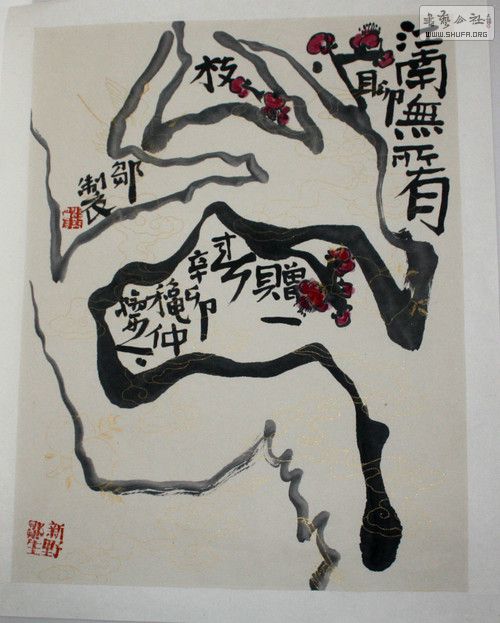 書藝公社
WWW.SHUFA.ORG
江南無所有
聊
贈一
枝
春
辛卯
穐仲
鄒
製
新野